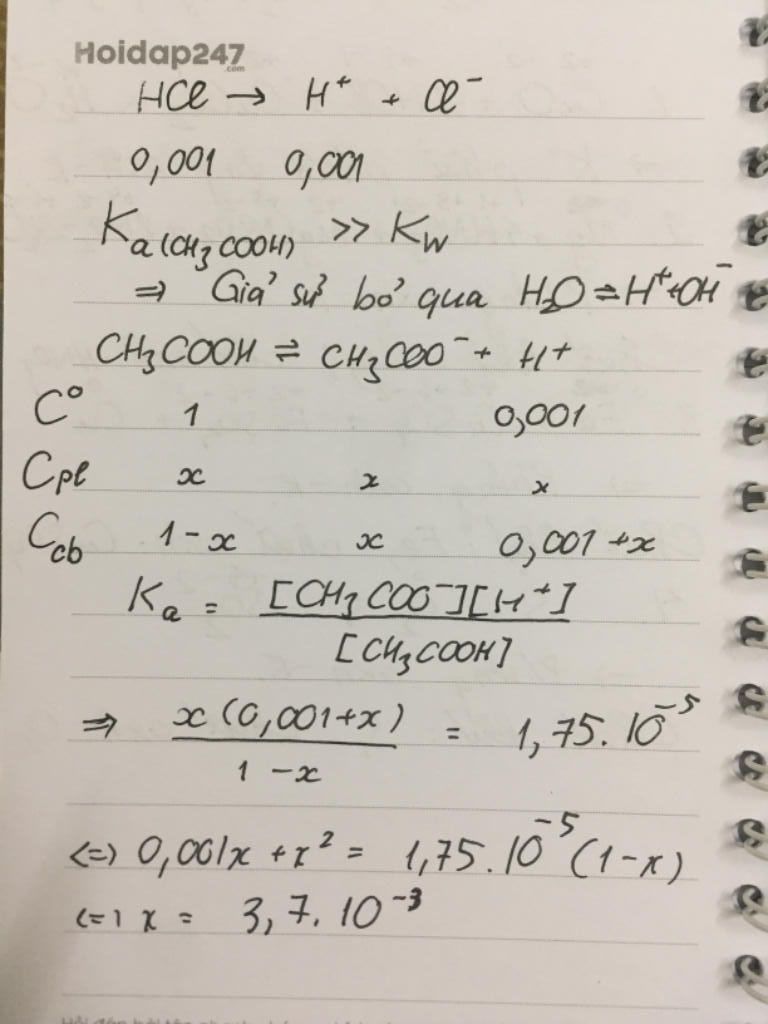 Hoidap247
.com
HCl → H⁺ + Cl⁻
0,001 0,001
Ka(CH₃COOH) >> Kw
⇒ Giả sử bỏ qua H₂O ⇌ H⁺+OH⁻
CH₃COOH ⇌ CH₃COO⁻ + H⁺
C⁰ 1 0,001
Cpl x x x
Ccb 1-x x 0,001+x
Ka = [CH₃COO⁻][H⁺]
[CH₃COOH]
⇒ x(0,001+x) = 1,75.10⁻⁵
1-x
<=> 0,001x + x² = 1,75.10⁻⁵(1-x)
<=> x = 3,7.10⁻³